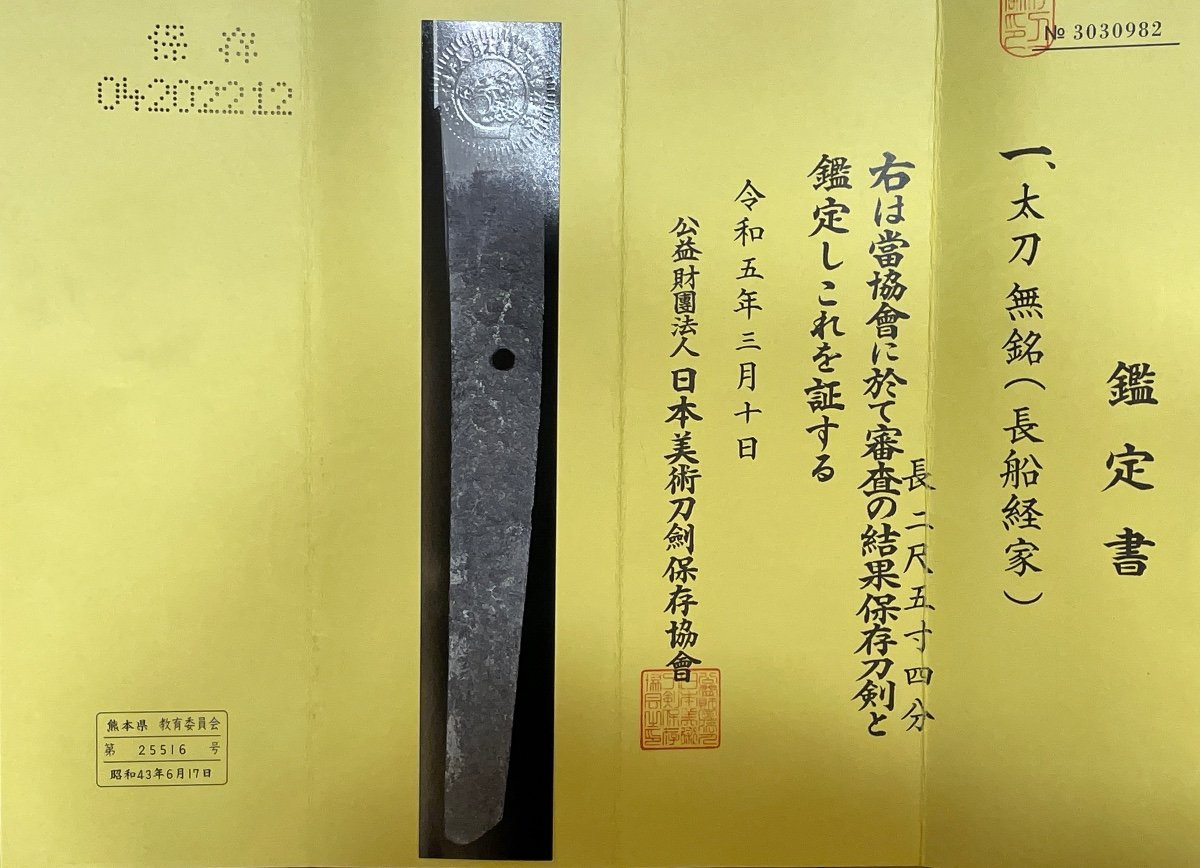 № 3030982
鑑定書
一、太刀 無銘(長船経家)
長二尺五寸四分
右は當協會に於て審査の結果保存刀剣と
鑑定しこれを証する
令和五年三月十日
公益財團法人 日本美術刀劍保存協會
保存
04202212
熊本県 教育委員会
第 25516 号
昭和43年6月17日